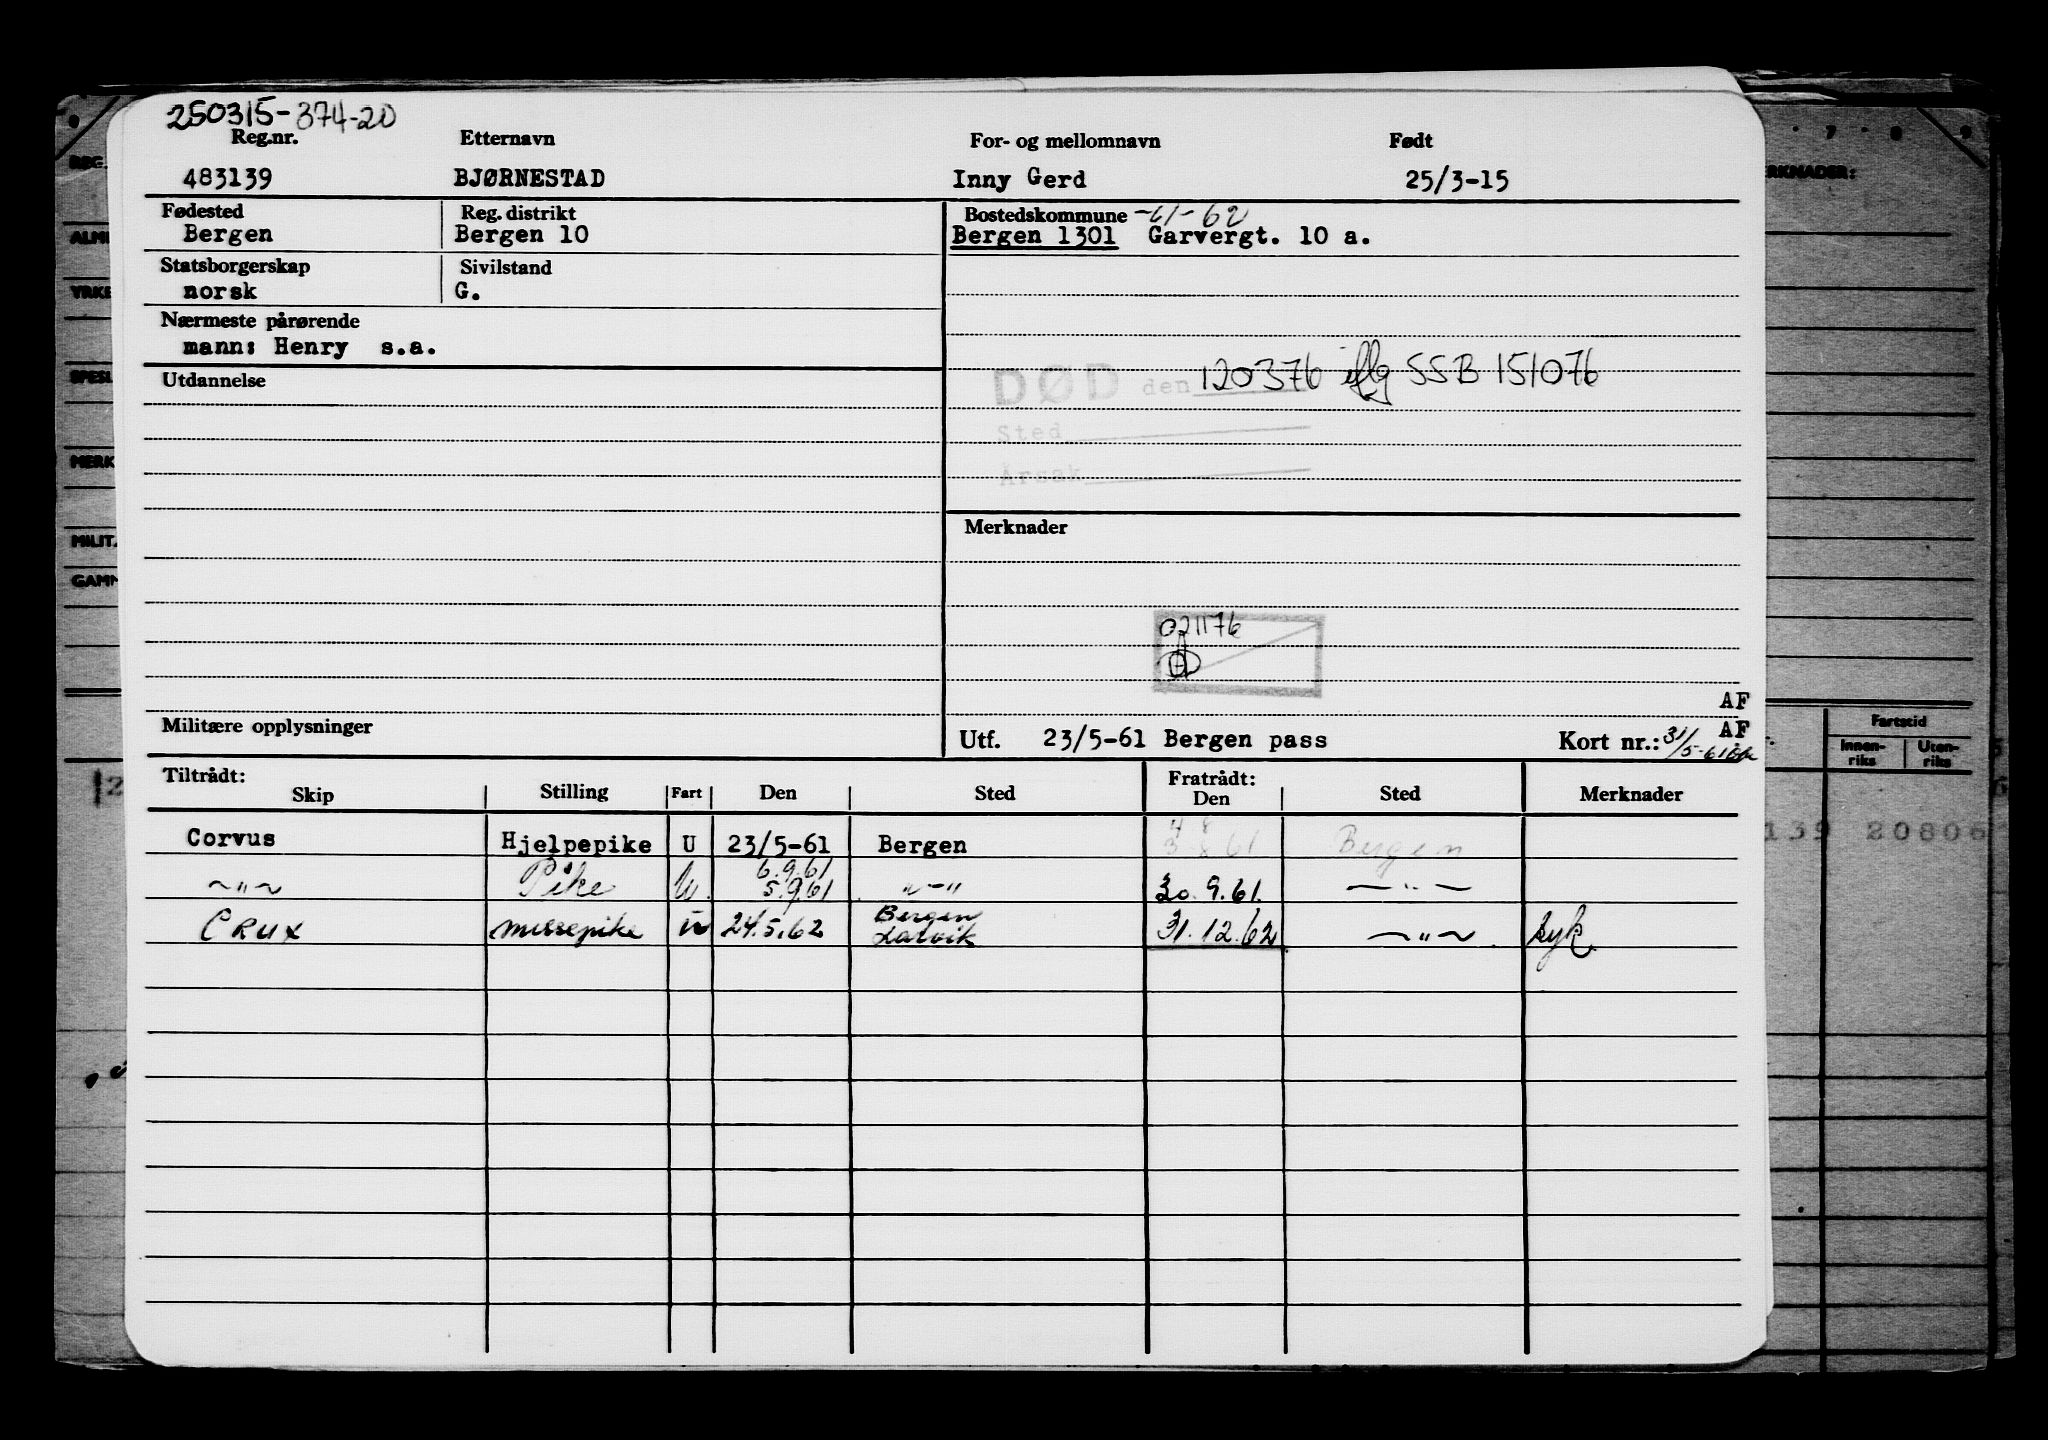 250315-374-20
Reg.nr. Etternavn For- og mellomnavn Født
483139 BJØRNESTAD Inny Gerd 25/3-15
Fødested Reg. distrikt Bostedskommune -61-62
Bergen Bergen 10 Bergen 1301 Garvergt. 10 a.
Statsborgerskap Sivilstand
norsk G.
Nærmeste pårørende
mann: Henry s.a.
Utdannelse
DØD den 120376 iflg SSB 151076
Sted
Årsak
Merknader
021176
AF
Militære opplysninger
Utf. 23/5-61 Bergen pass Kort nr.: 31/5-61 AF
Tiltrådt: Fratrådt:
Skip Stilling Fart Den Sted Den Sted Merknader
Corvus Hjelpepike U 23/5-61 Bergen 61 Bergen
6.9.61
~"~ Pike U. 5.9.61 "-" 30.9.61. —"—
Bergen
CRUX messepike U 24.5.62 Larvik 31.12.62 ~"~ syk
REG.
MERKNADER:
7 8 9
MERK
MILIT.
Fartstid
Innen-
riks
Uten-
riks
139 20806